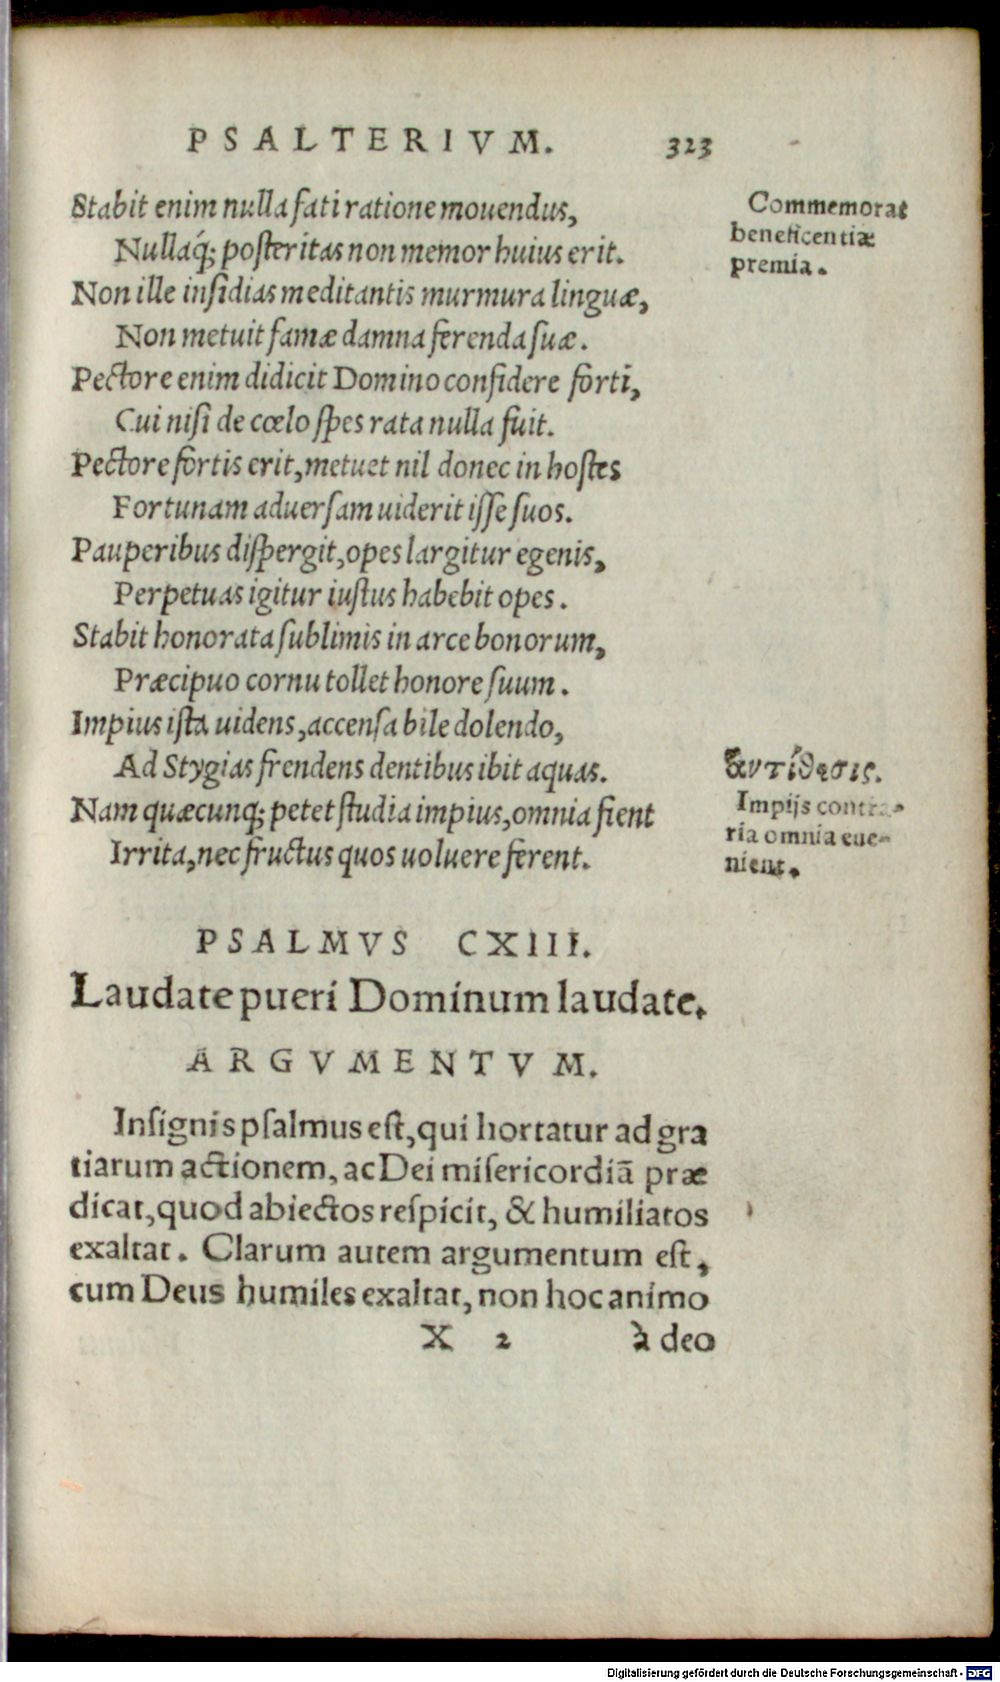 PSALTERIVM. 323
Stabit enim nulla fati ratione mouendus,
Nullaq́; posteritas non memor huius erit.
Non ille insidias meditantis murmura linguæ,
Non metuit famæ damna ferenda suæ.
Pectore enim didicit Domino confidere forti,
Cui nisi de cœlo spes rata nulla fuit.
Pectore fortis erit, metuet nil donec in hostes
Fortunam aduersam uiderit isse suos.
Pauperibus dispergit, opes largitur egenis,
Perpetuas igitur iustus habebit opes.
Stabit honorata sublimis in arce bonorum,
Præcipuo cornu tollet honore suum.
Impius ista uidens, accensa bile dolendo,
Ad Stygias frendens dentibus ibit aquas.
Nam quæcunq; petet studia impius, omnia fient
Irrita, nec fructus quos uoluere ferent.
Commemorat
beneficentiæ
premia.
ἀντίθεσις.
Impijs contra-
ria omnia eue-
nient.
PSALMVS CXIII.
Laudate pueri Dominum laudate.
ARGVMENTVM.
Insignis psalmus est, qui hortatur ad gra
tiarum actionem, ac Dei misericordiã præ
dicat, quod abiectos respicit, & humiliatos
exaltat. Clarum autem argumentum est,
cum Deus humiles exaltat, non hoc animo
X 2 à deo
Digitalisierung gefördert durch die Deutsche Forschungsgemeinschaft - DFG